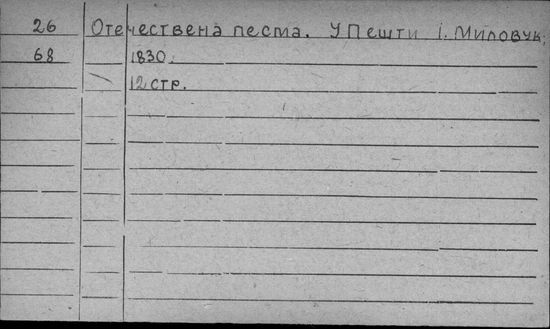 26 Отечествена песма. У Пешти і. Миловук,
68 1830.
12 стр.